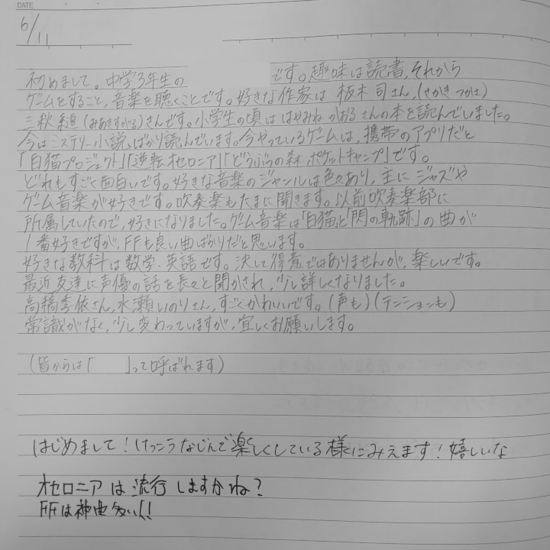 DATE
6/11
初めまして。中学3年生の　　　です。趣味は読書,それから
ゲームをすること,音楽を聴くことです。好きな作家は 栃木 司さん,(さかき つかさ)
三秋 縋(みあきすがる)さんです。小学生の頃は はやみね かおる さんの本を読んでいました。
今はミステリー小説ばかり読んでいます。今やっているゲームは,携帯のアプリだと
「白猫プロジェクト」「逆転オセロニア」「どうぶつの森 ポケットキャンプ」です。
どれもすごく面白いです。好きな音楽のジャンルは色々あり,主に ジャズや
ゲーム音楽が好きです。吹奏楽もたまに聞きます。以前吹奏楽部に
所属していたので,好きになりました。ゲーム音楽は「白猫と「閃の軌跡」の曲が
1番好きですが,FFも良い曲ばかりだと思います。
好きな教科は数学・英語です。決して得意ではありませんが,楽しいです。
最近友達に声優の話を長々と聞かされ,少し詳しくなりました。
高橋李依さん,水瀬いのりさん,すごくかわいいです。(声も)(テンションも)
常識がなく,少し変わっていますが,宜しくお願いします。
(皆からは「　　」って呼ばれます)
はじめまして!けっこうなじんで楽しくしている様にみえます!嬉しいな
オセロニアは流行しますかね?
FFは神曲多い!!